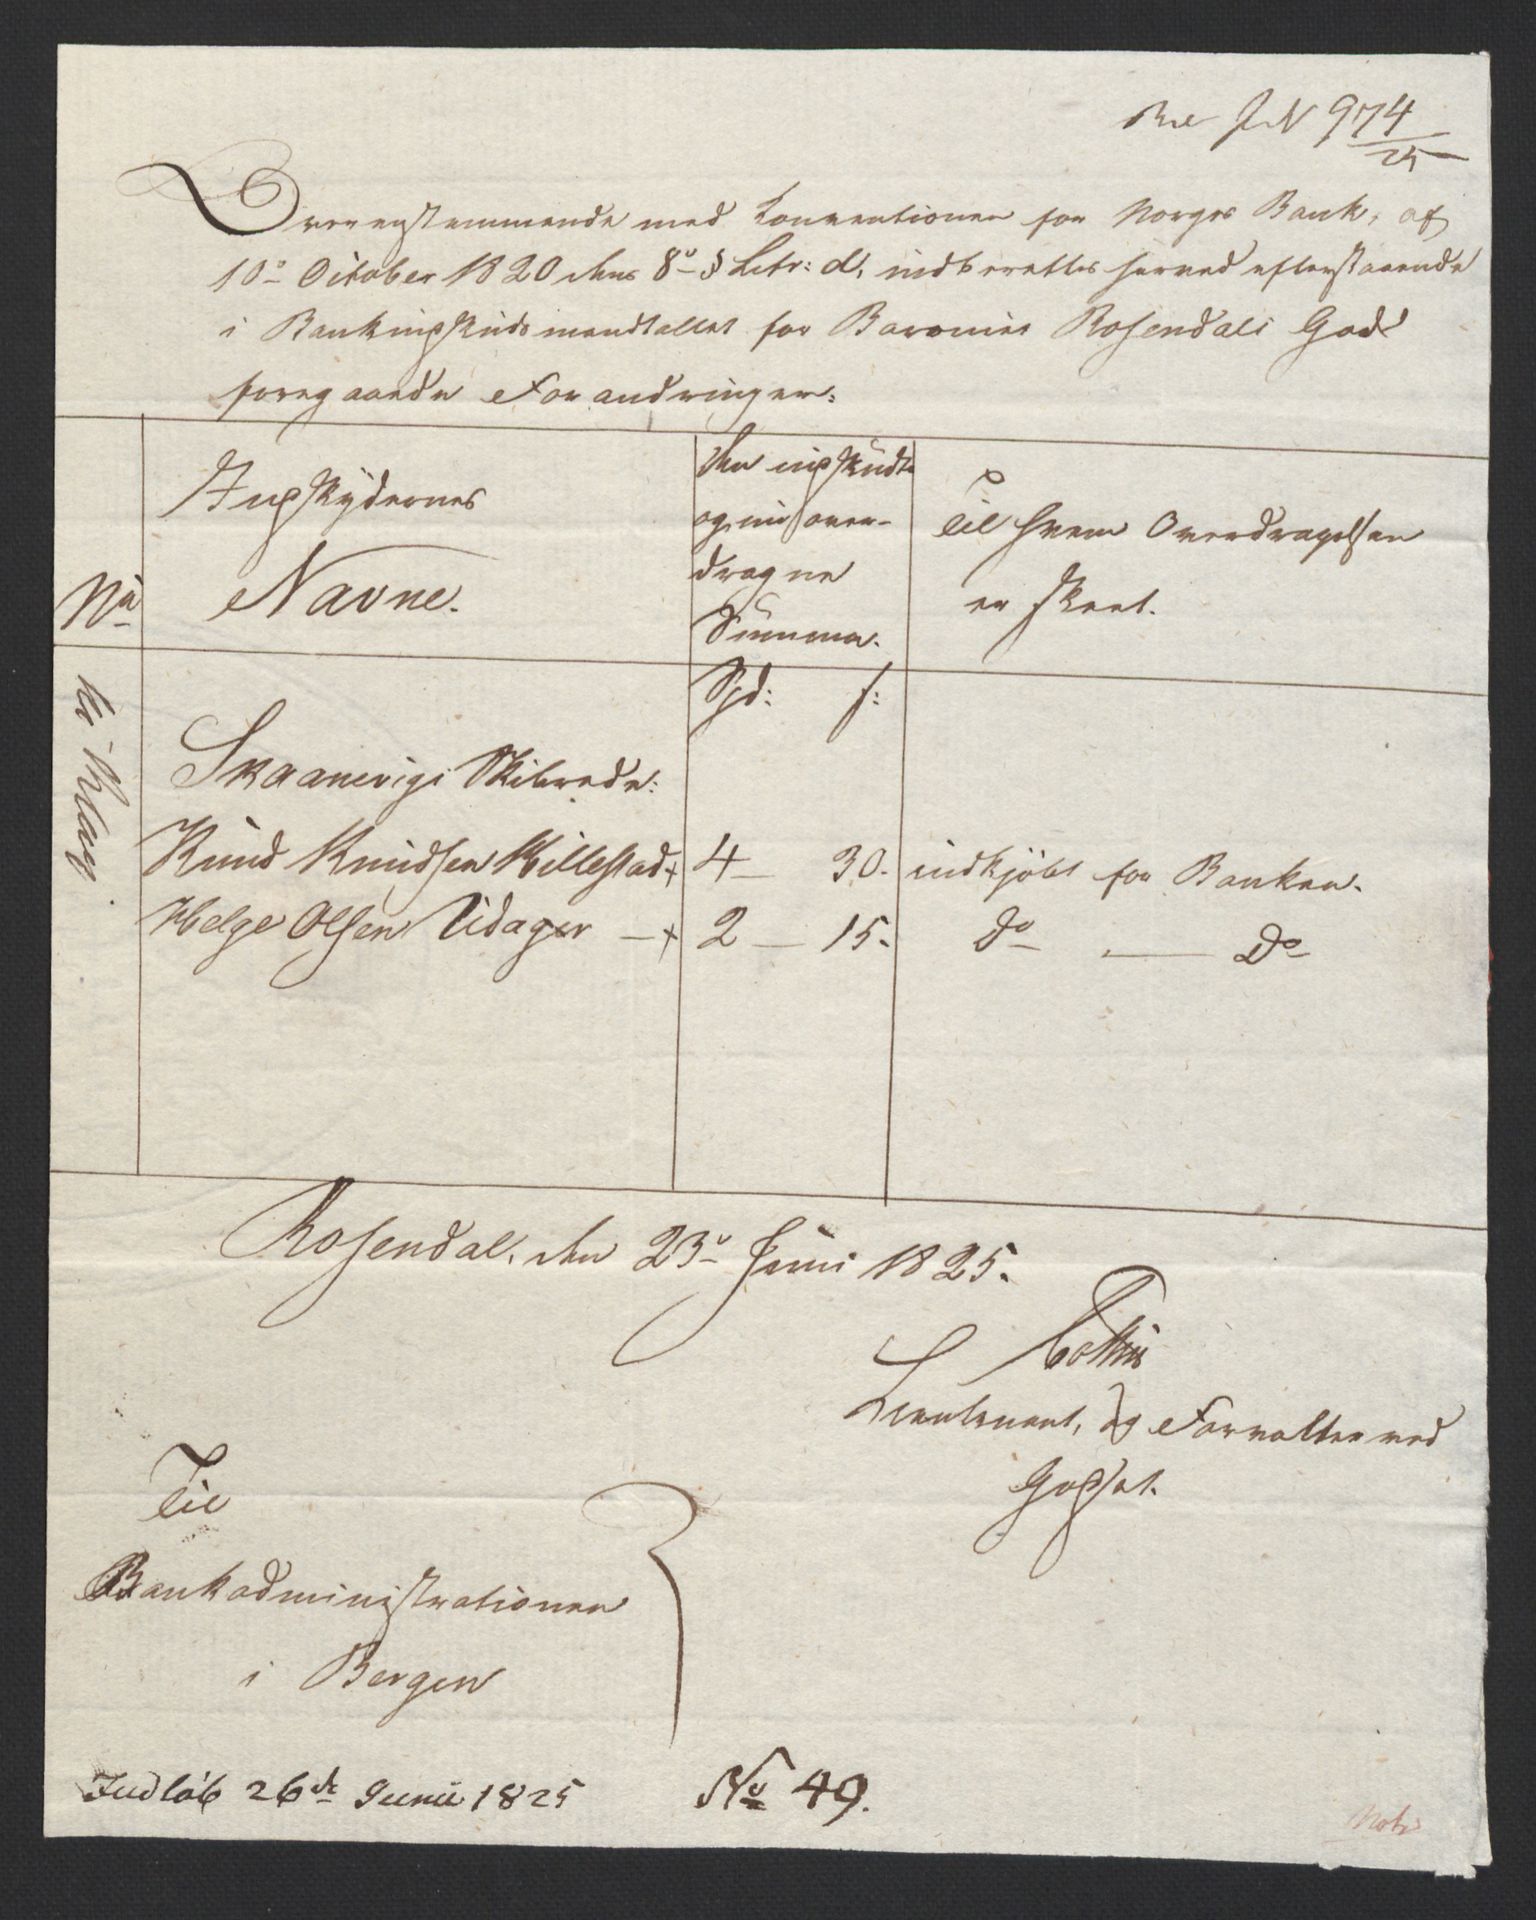 J N 974/25
Overensstemmende med Conventionen for Norges Bank, af
10de October 1820 dens 8de § Litr: d, indberettes herved efterstaaende
i Bankindskuds mandtallet for Baroniet Rosendals Gods
foregaaede Forandringer:
No
Indskydernes
Navne.
den indskudte
og nu over-
dragne
Summa.
Til hvem Overdragelsen
er skeet.
Spd: s:
Skaanevigs Skibrede:
Knud Knudsen Millestad + 4 — 30. indkjöbt for Banken.
Helge Olsen Udager — + 2 — 15. Do — Do
Rosendal, den 23de Juni 1825.
Lieutenant, og Forvalter ved
Godset.
Til
Bankadministrationen
i Bergen
Indlöb 26de Junii 1825
No 49.
Not: